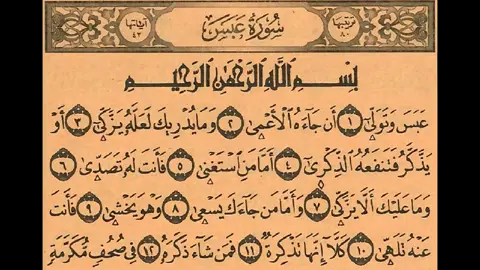 ترتيبها ٨٠ سُورَةُ عَبَسَ آياتها ٤٢
بِسْمِ اللَّهِ الرَّحْمَنِ الرَّحِيمِ
عَبَسَ وَتَوَلَّىٰ ١ أَن جَاءَهُ الْأَعْمَىٰ ٢ وَمَا يُدْرِيكَ لَعَلَّهُ يَزَّكَّىٰ ٣ أَوْ
يَذَّكَّرُ فَتَنفَعَهُ الذِّكْرَىٰ ٤ أَمَّا مَنِ اسْتَغْنَىٰ ٥ فَأَنتَ لَهُ تَصَدَّىٰ ٦
وَمَا عَلَيْكَ أَلَّا يَزَّكَّىٰ ٧ وَأَمَّا مَن جَاءَكَ يَسْعَىٰ ٨ وَهُوَ يَخْشَىٰ ٩ فَأَنتَ
عَنْهُ تَلَهَّىٰ ١٠ كَلَّا إِنَّهَا تَذْكِرَةٌ ١١ فَمَن شَاءَ ذَكَرَهُ ١٢ فِي صُحُفٍ مُّكَرَّمَةٍ